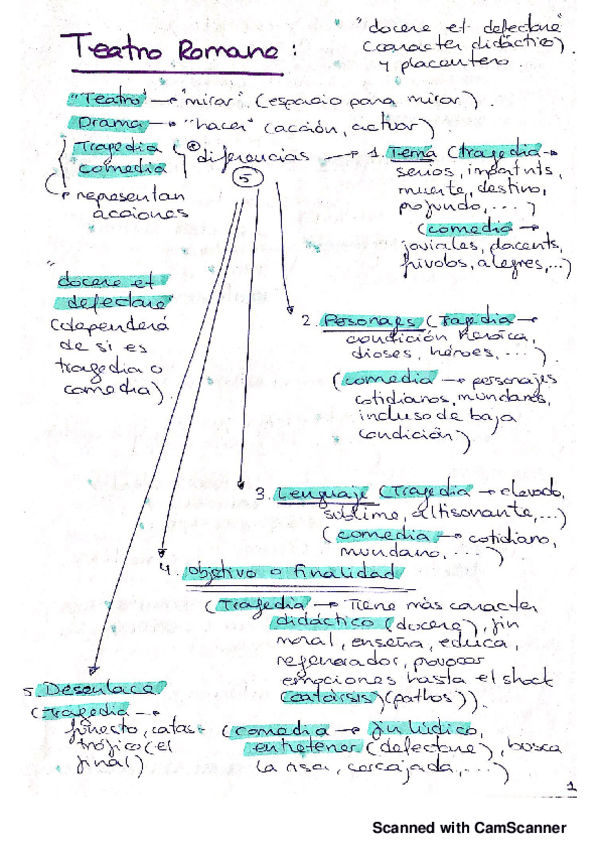 Teatro Romano:
"docere et delectare"
(caracter didáctico)
y placentero.
"Teatro" → "mirar". (espacio para mirar).
Drama → "hacer" (acción, actuar)
Tragedia
comedia
→ representan
acciones
diferencias →
5
1. Tema (tragedia →
serios, importnts,
muerte, destino,
profundo, ...)
(comedia →
joviales, placents,
frívolos, alegres, ...)
"docere et
delectare"
(dependerá
de si es
tragedia o
comedia).
2. Personajes (Tragedia →
condición heroica,
dioses, héroes, ...).
(comedia → personajes
cotidianos, mundanos,
incluso de baja
condición)
3. Lenguaje (Tragedia → elevado,
sublime, altisonante, ...)
(comedia → cotidiano,
mundano, ...)
4. objetivo o finalidad
(Tragedia → Tiene más caracter
didáctico (docere), fin
moral, enseña, educa,
regenerador, provocar
emociones hasta el shock
(catarsis) (pathos)).
(comedia → fin lúdico,
entretener (delectare), busca
la risa, carcajada, ...)
5. Desenlace
(tragedia →
funesto, catas-
trófico (el
final)
1
Scanned with CamScanner